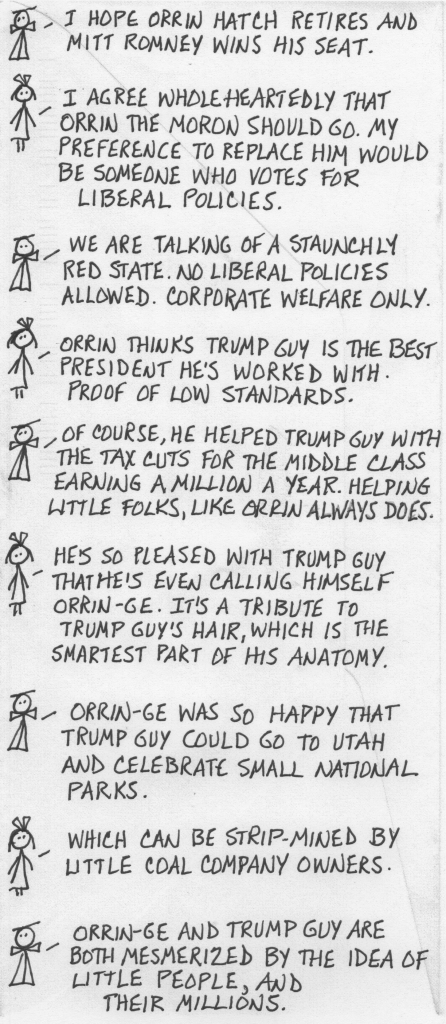 I HOPE ORRIN HATCH RETIRES AND
MITT ROMNEY WINS HIS SEAT.
I AGREE WHOLEHEARTEDLY THAT
ORRIN THE MORON SHOULD GO. MY
PREFERENCE TO REPLACE HIM WOULD
BE SOMEONE WHO VOTES FOR
LIBERAL POLICIES.
WE ARE TALKING OF A STAUNCHLY
RED STATE. NO LIBERAL POLICIES
ALLOWED. CORPORATE WELFARE ONLY.
ORRIN THINKS TRUMP GUY IS THE BEST
PRESIDENT HE'S WORKED WITH.
PROOF OF LOW STANDARDS.
OF COURSE, HE HELPED TRUMP GUY WITH
THE TAX CUTS FOR THE MIDDLE CLASS
EARNING A MILLION A YEAR. HELPING
LITTLE FOLKS, LIKE ORRIN ALWAYS DOES.
HE'S SO PLEASED WITH TRUMP GUY
THAT HE'S EVEN CALLING HIMSELF
ORRIN-GE. IT'S A TRIBUTE TO
TRUMP GUY'S HAIR, WHICH IS THE
SMARTEST PART OF HIS ANATOMY.
ORRIN-GE WAS SO HAPPY THAT
TRUMP GUY COULD GO TO UTAH
AND CELEBRATE SMALL NATIONAL
PARKS.
WHICH CAN BE STRIP-MINED BY
LITTLE COAL COMPANY OWNERS.
ORRIN-GE AND TRUMP GUY ARE
BOTH MESMERIZED BY THE IDEA OF
LITTLE PEOPLE, AND
THEIR MILLIONS.